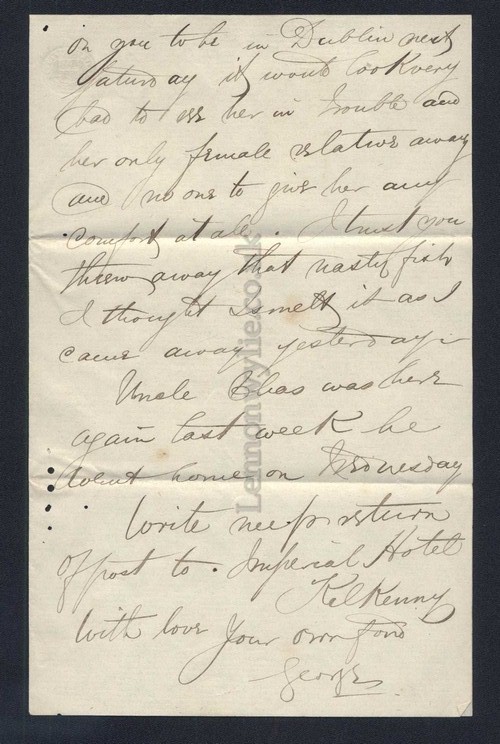 on you to be in Dublin next
Saturday it would look very
bad to see her in trouble and
her only female relative away
and no one to give her any
comfort at all. I trust you
threw away that nasty fish
I thought I smelt it as I
came away yesterday
Uncle Chas was here
again last week he
went home on Wednesday
Write me pr return
of post to. Imperial Hotel
Kilkenny
With love Your own fond
George
LennonWylie.co.uk